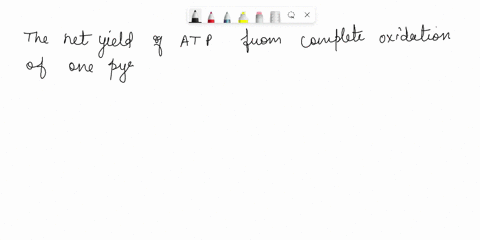 The net yield of ATP from complete oxidation
of one pyr